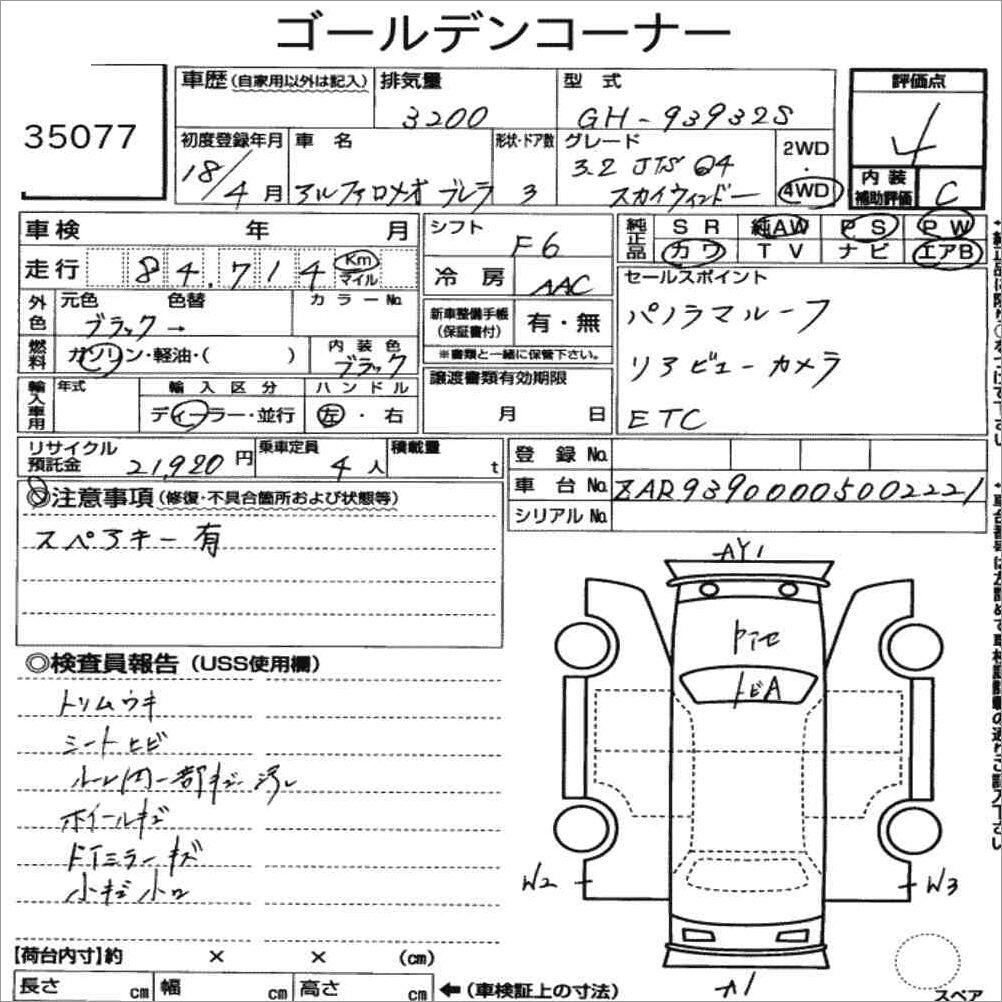 ゴールデンコーナー
35077
車歴(自家用以外は記入) 排気量 3200 型式 GH-93932S 評価点 4
初度登録年月 18/4月 車名 アルファロメオ ブレラ 形状・ドア数 3 グレード 3.2 JTS Q4 スカイウィンドー 2WD・4WD 内装補助評価 C
車検 年 月 シフト F6 純正品 SR 純AW PS PW
カワ TV ナビ エアB
走行 84,714 Km マイル 冷房 AAC セールスポイント
外色 元色 ブラック→ 色替 カラーNo. 新車整備手帳(保証書付) 有・無 パノラマルーフ
※書類と一緒に保管下さい。
燃料 ガソリン・軽油・( ) 内装色 ブラック リアビューカメラ
輸入車用 年式 輸入区分 ディーラー・並行 ハンドル 左・右 譲渡書類有効期限 月 日 ETC
リサイクル預託金 21,920円 乗車定員 4人 積載量 t 登録No.
車台No. ZAR93900005002221
シリアルNo.
◎注意事項(修復・不具合箇所および状態等)
スペアキー有
AY1
◎検査員報告(USS使用欄)
トリムウキ
トビA
シートヒビ
ルーム内一部キズ汚レ
ホイールキズ
ドアミラーキズ
小キズ小凹
W2 W3
A1
【荷台内寸】約 × × (cm)
長さ cm 幅 cm 高さ cm ←(車検証上の寸法)
スペア